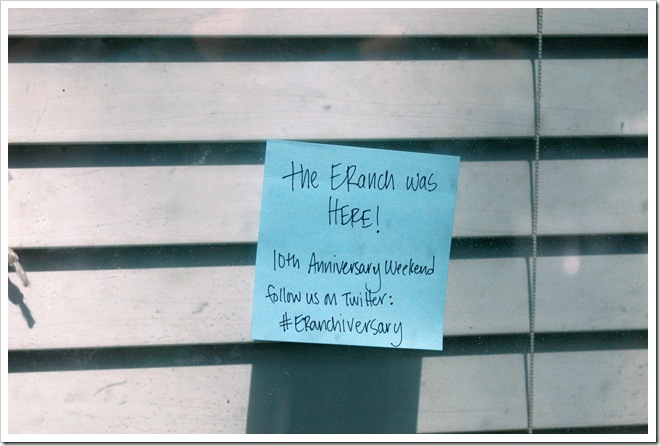 the ERanch was
HERE!
10th Anniversary Weekend
follow us on Twitter:
#ERanchiversary